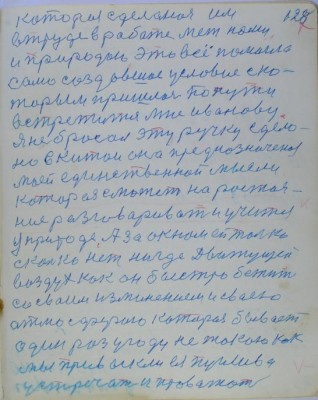 которая сделаная им 128
в труде в работе мет поми,
и природою, это всё помогла
само создовшие условие ско-
торым пришлос по пути
встретится мне иванову.
Я не бросал эту ручку сдела-
но в китаи она предназначена
моей единственной мысли
которая сможет на растоя-
ние разговариват и учится
у природе. А за окном ей толка
сколко нет нигде Движущей
воздух как он быстро бежит
со своим изминением и своею
атмосферою которая бывает
один раз угоду не такою как
мы привыкли ея
встречат и проважат